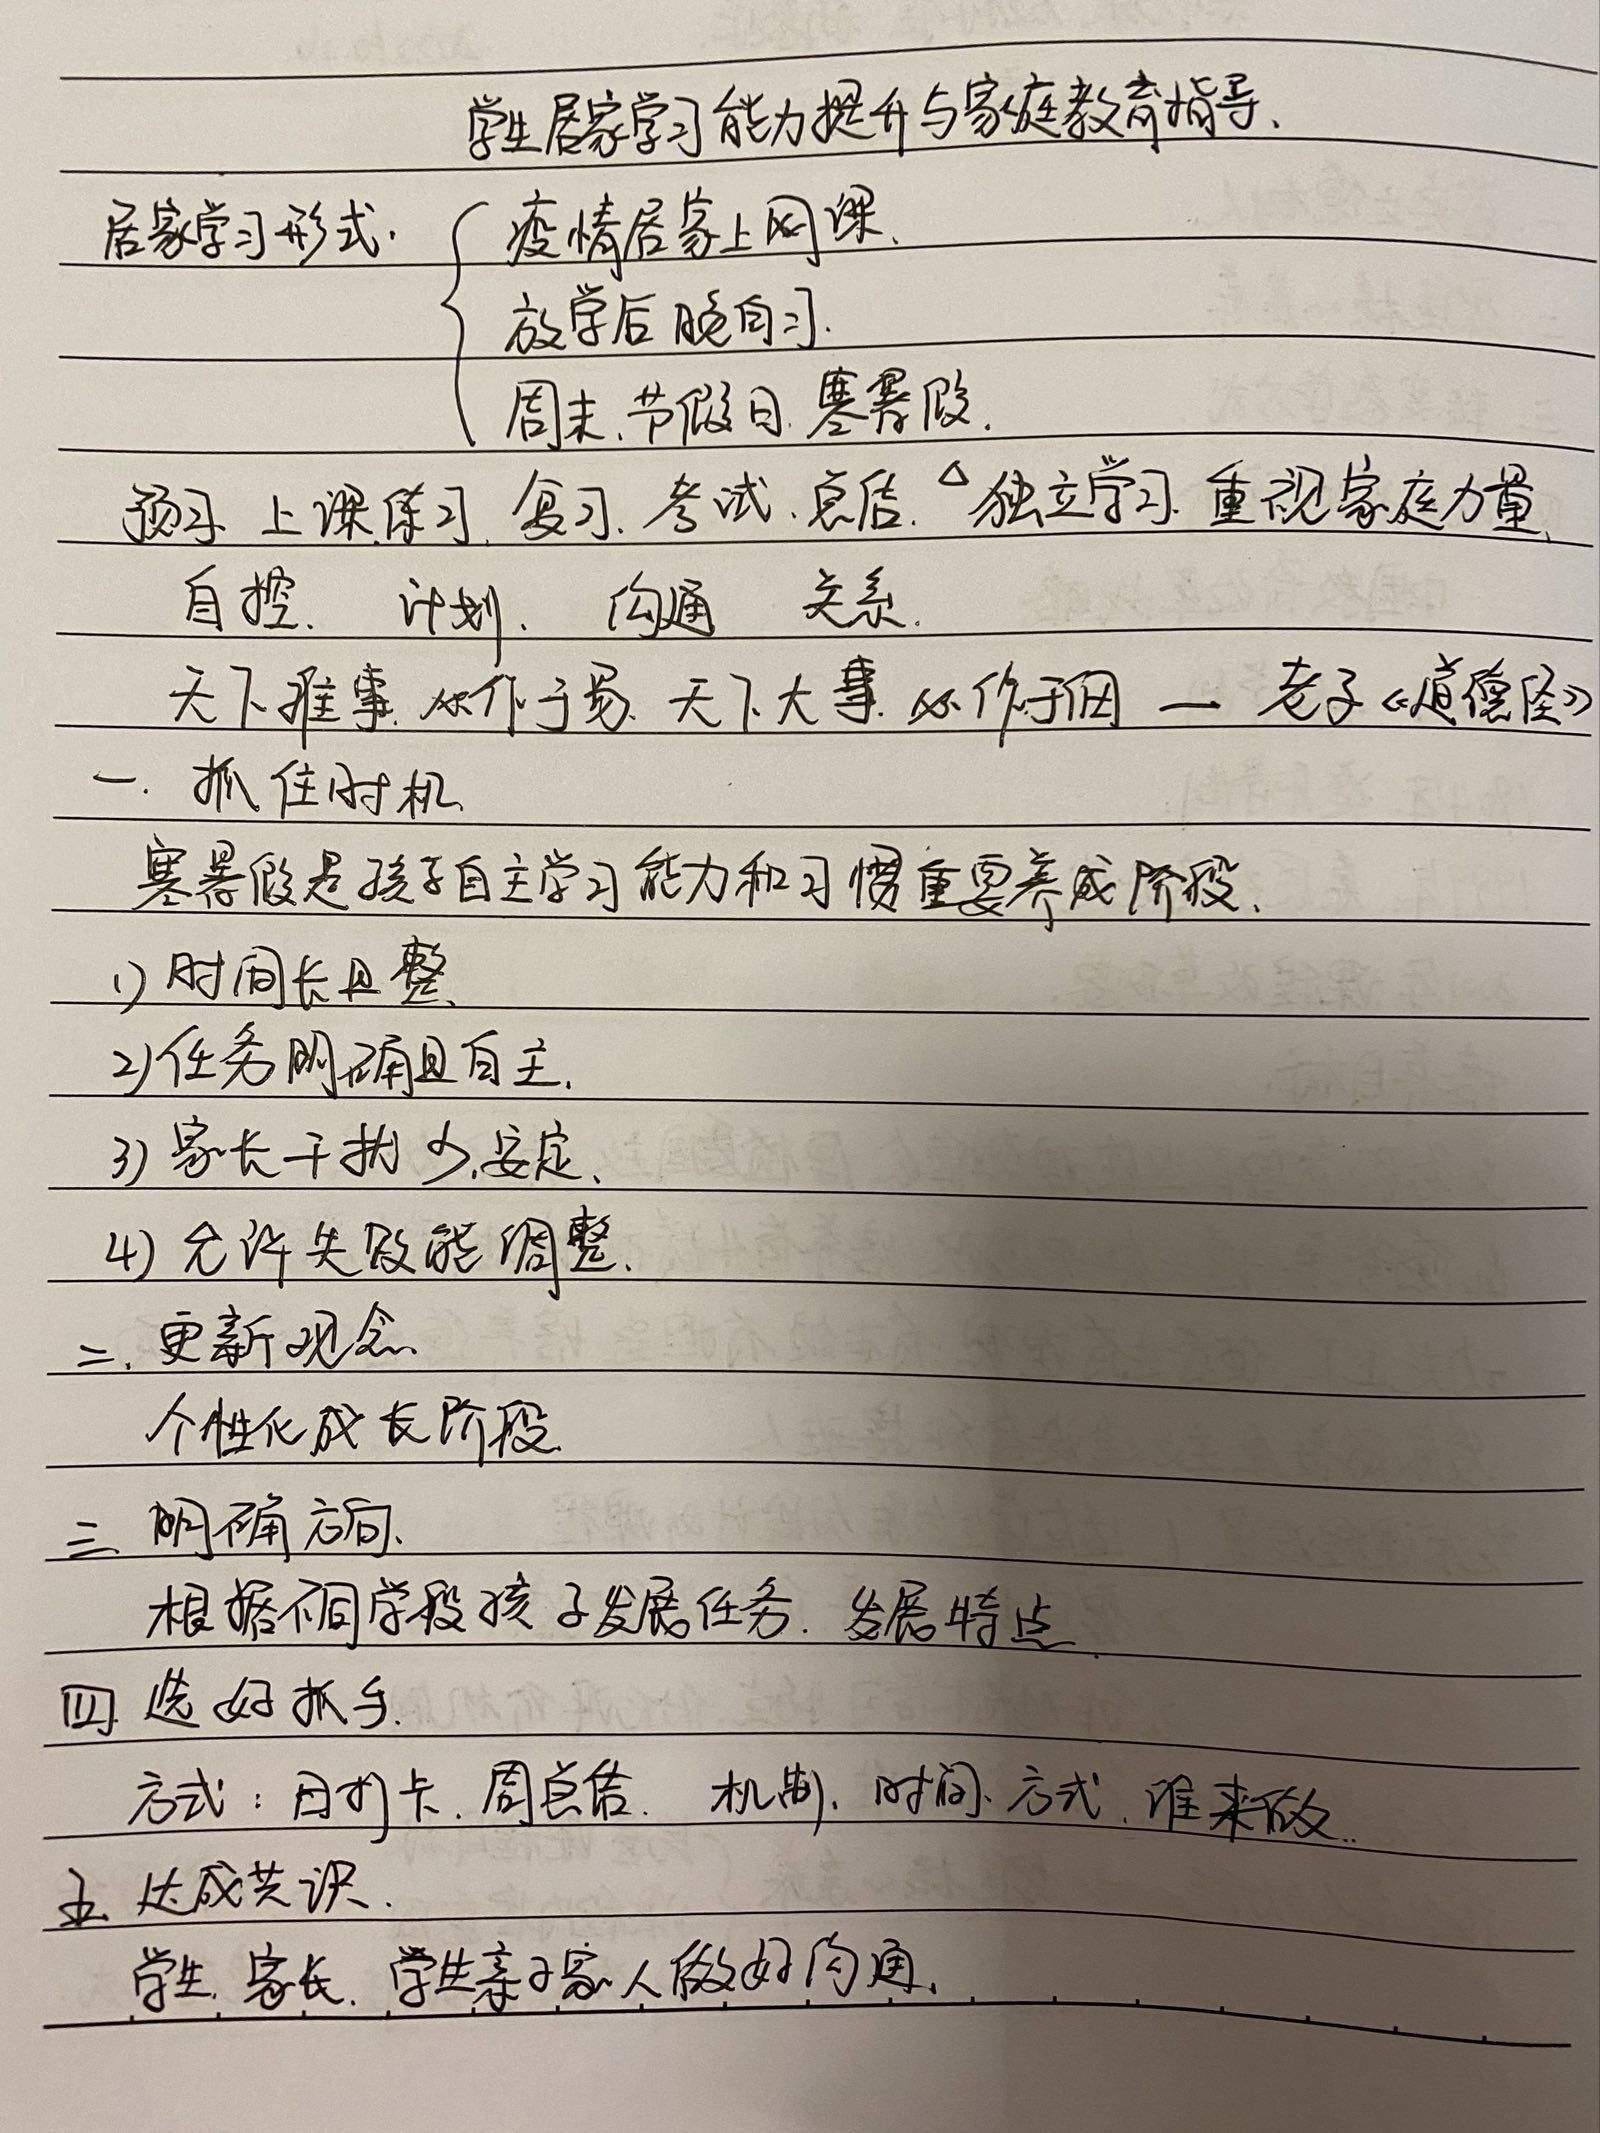 学生居家学习能力提升与家庭教育指导、
居家学习形式. { 疫情居家上网课、
放学后晚自习.
周末、节假日、寒暑假、
预习、上课、练习、复习、考试、总结、△独立学习、重视家庭力量、
自控、 计划、 沟通 关系、
天下难事、必作于易、天下大事、必作于细 — 老子《道德经》
一、抓住时机、
寒暑假是孩子自主学习能力和习惯重要养成阶段、
1) 时间长且整、
2) 任务明确且自主、
3) 家长干扰少、安定、
4) 允许失败能调整、
二、更新观念、
个性化成长阶段、
三、明确方向、
根据不同学段孩子发展任务、发展特点
四、选好抓手、
方式：日打卡、周总结、 机制、时间、方式、谁来做..
五、达成共识、
学生、家长、学生亲子家人做好沟通、